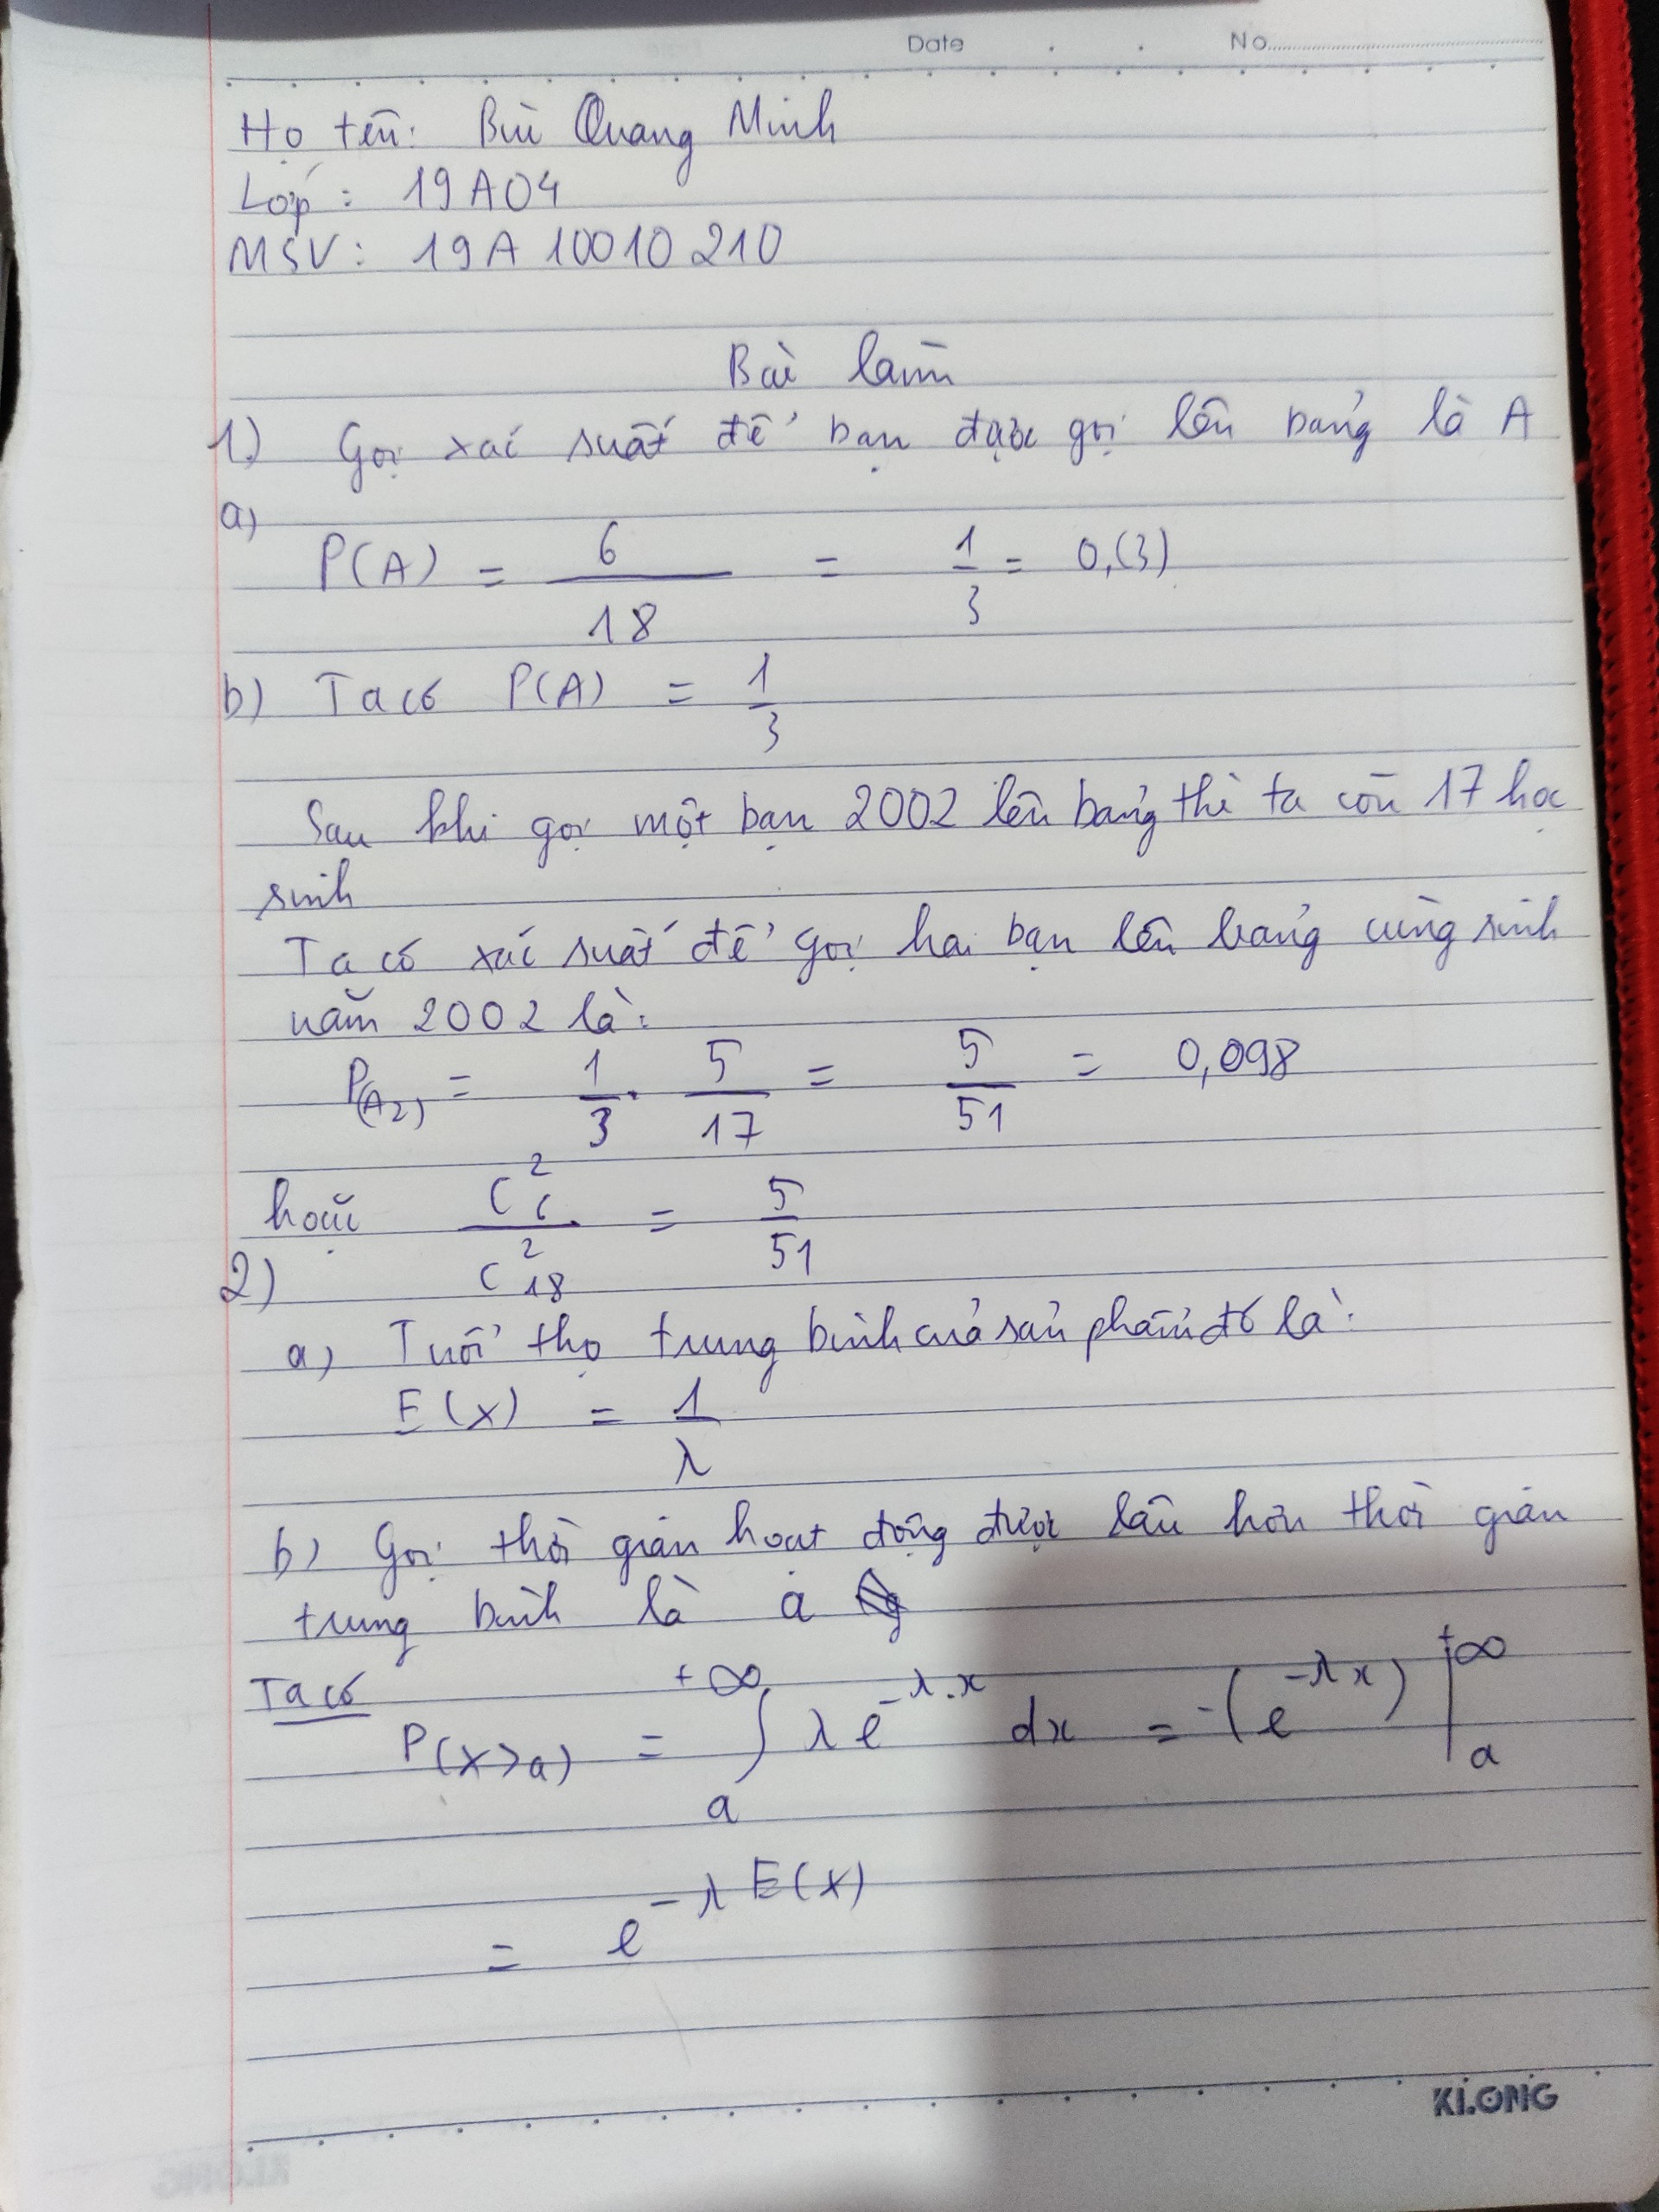 Date . . No
Họ tên: Bùi Quang Minh
Lớp: 19A04
MSV: 19A 10010 210
Bài làm
1) Gọi xác suất để bạn được gọi lên bảng là A
a)
P(A) = 6/18 = 1/3 = 0,(3)
b) Ta có P(A) = 1/3
Sau khi gọi một bạn 2002 lên bảng thì ta còn 17 học
sinh
Ta có xác suất để gọi hai bạn lên bảng cùng sinh
năm 2002 là:
P(A2) = 1/3 . 5/17 = 5/51 = 0,098
hoặc C²₆ / C²₁₈ = 5/51
2)
a) Tuổi thọ trung bình của sản phẩm đó là:
E(x) = 1/λ
b) Gọi thời gian hoạt động được lâu hơn thời gian
trung bình là a
Ta có
P(x>a) = ∫ₐ^{+∞} λe^{-λ.x} dx = -(e^{-λx}) |ₐ^{+∞}
= e^{-λE(x)}
KLONG